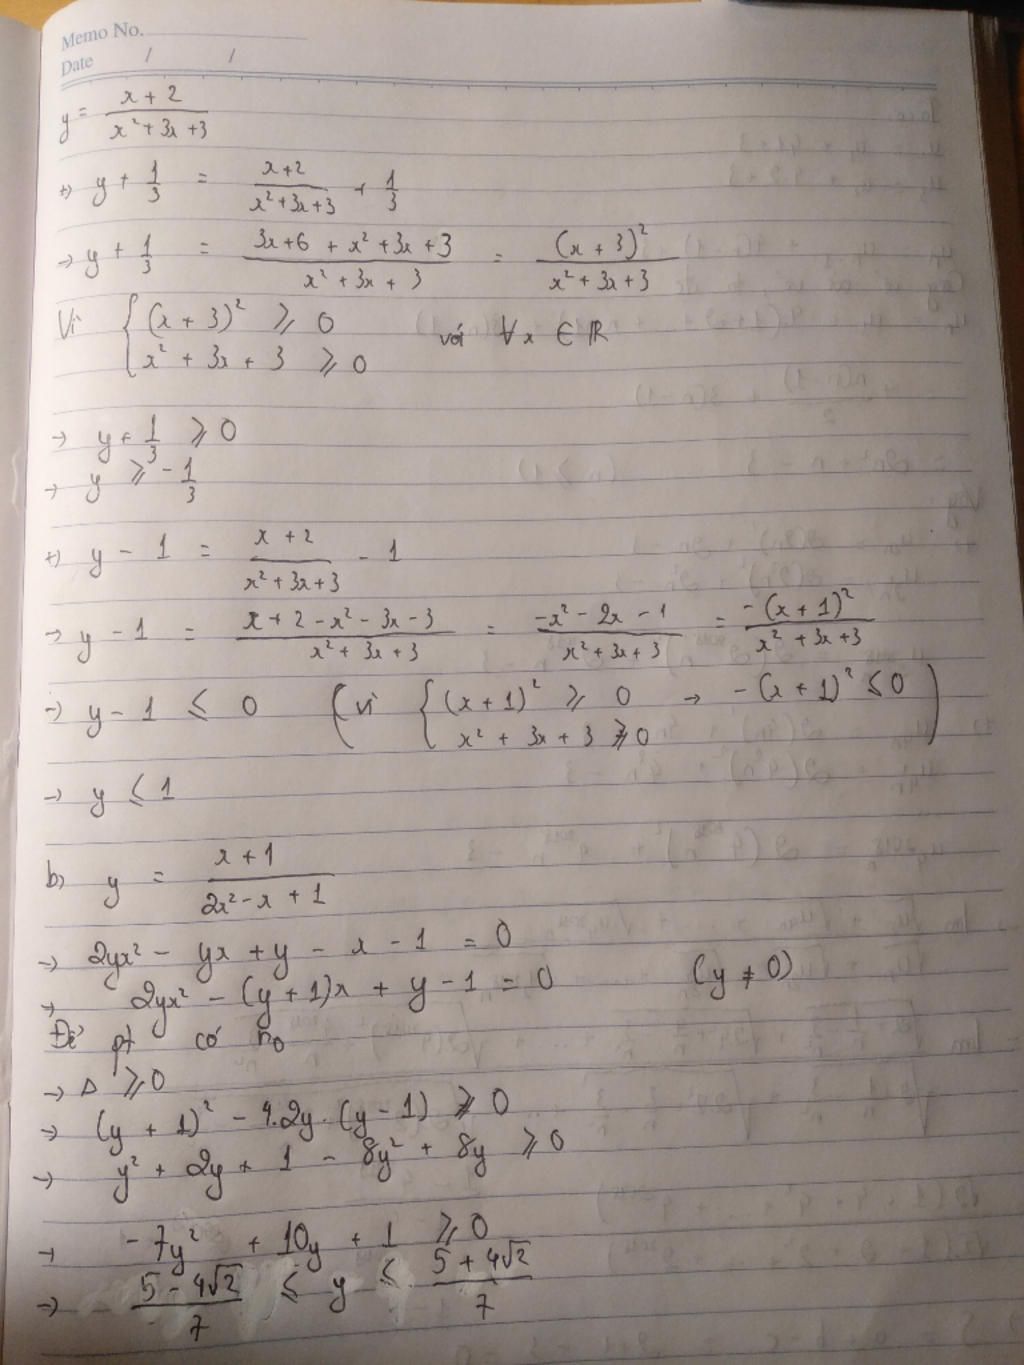 Memo No.
Date / /
y = \frac{x+2}{x² + 3x + 3}
+) y + \frac{1}{3} = \frac{x+2}{x²+3x+3} + \frac{1}{3}
→ y + \frac{1}{3} = \frac{3x+6 + x² + 3x + 3}{x² + 3x + 3} = \frac{(x + 3)²}{x² + 3x + 3}
Vì { (x + 3)² ⩾ 0
x² + 3x + 3 ⩾ 0 với ∀x ∈ ℝ
→ y + \frac{1}{3} ⩾ 0
→ y ⩾ -\frac{1}{3}
+) y - 1 = \frac{x + 2}{x² + 3x + 3} - 1
→ y - 1 = \frac{x + 2 - x² - 3x - 3}{x² + 3x + 3} = \frac{-x² - 2x - 1}{x² + 3x + 3} = \frac{-(x + 1)²}{x² + 3x + 3}
→ y - 1 ⩽ 0 (vì { (x + 1)² ⩾ 0 → -(x + 1)² ⩽ 0
x² + 3x + 3 ⩾ 0)
→ y ⩽ 1
b) y = \frac{x + 1}{2x² - x + 1}
→ 2yx² - yx + y - x - 1 = 0
→ 2yx² - (y + 1)x + y - 1 = 0 (y ≠ 0)
Để pt có n₀
→ Δ ⩾ 0
→ (y + 1)² - 4.2y.(y - 1) ⩾ 0
→ y² + 2y + 1 - 8y² + 8y ⩾ 0
→ -7y² + 10y + 1 ⩾ 0
→ \frac{5 - 4√2}{7} ⩽ y ⩽ \frac{5 + 4√2}{7}